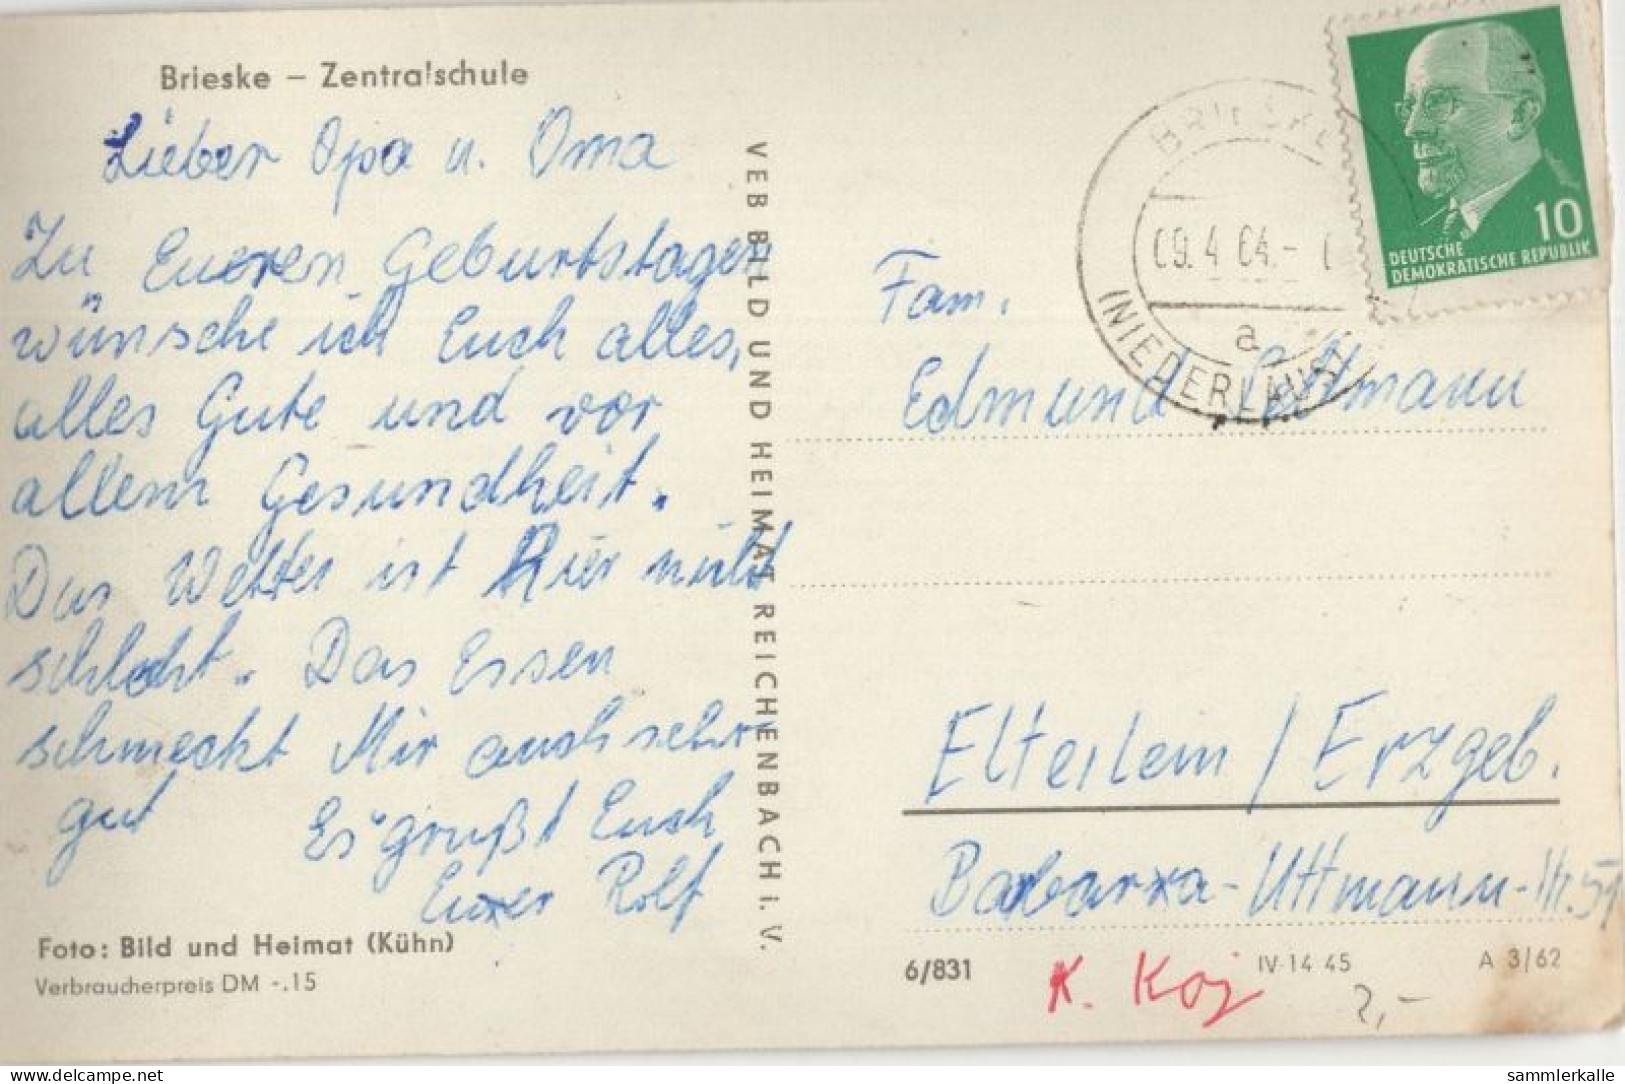 Brieske – Zentralschule
Lieber Opa u. Oma
Zu Eueren Geburtstagen
wünsche ich Euch alles,
alles Gute und vor
allem Gesundheit.
Das Wetter ist hier nicht
schlecht. Das Essen
schmeckt Mir auch sehr
gut
Es grüßt Euch
Euer Rolf
Foto: Bild und Heimat (Kühn)
Verbraucherpreis DM -.15
VEB BILD UND HEIMAT REICHENBACH i. V.
BRIESKE
09.4.64.-
a
(NIEDERLAUSITZ)
10
DEUTSCHE
DEMOKRATISCHE REPUBLIK
Fam.
Edmund
Elterlein / Erzgeb.
Barbara-Uttmann-Str. 51
6/831
IV-14 45
A 3/62
K.
2,-
delcampe.net
sammlerkalle